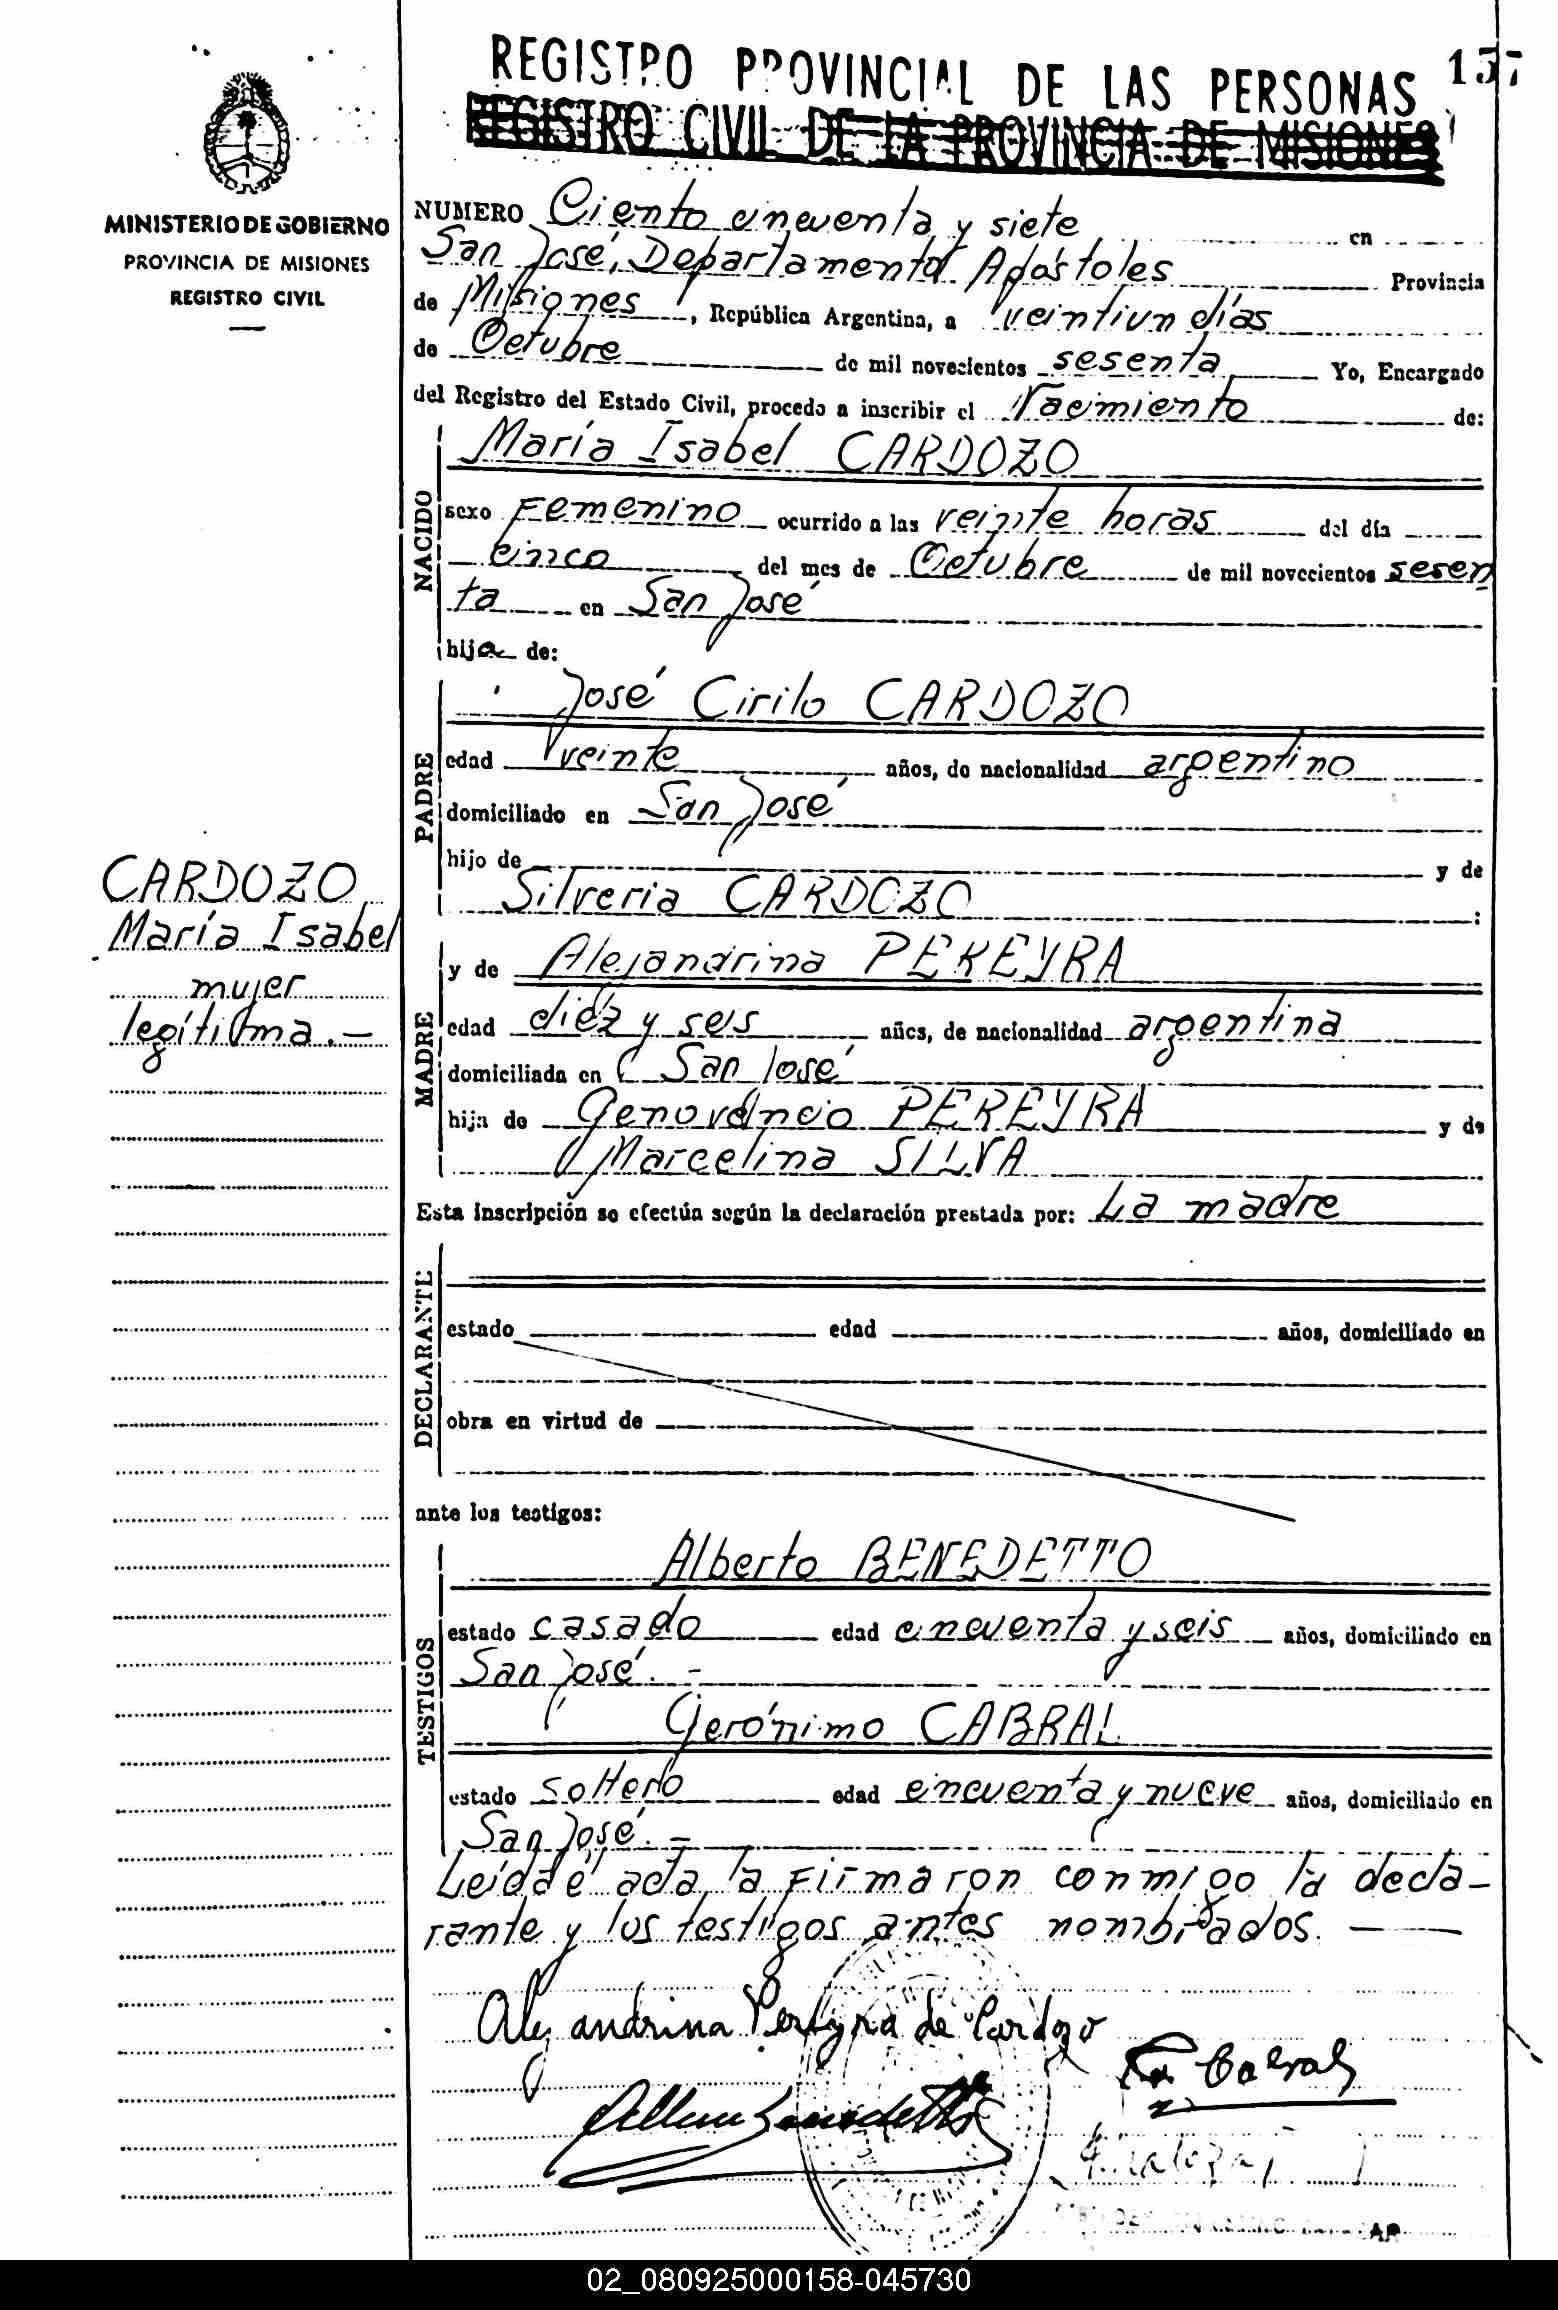 REGISTRO PROVINCIAL DE LAS PERSONAS
157
REGISTRO CIVIL DE LA PROVINCIA DE MISIONES
MINISTERIO DE GOBIERNO
PROVINCIA DE MISIONES
REGISTRO CIVIL
NUMERO Ciento cincuenta y siete en
San José, Departamento Apóstoles Provincia
de Misiones, República Argentina, a veintiun días
de Octubre de mil novecientos sesenta Yo, Encargado
del Registro del Estado Civil, procedo a inscribir el Nacimiento de:
NACIDO
María Isabel CARDOZO
sexo Femenino ocurrido a las veinte horas del día
cinco del mes de Octubre de mil novecientos sesen
ta en San José
hija de:
PADRE
José Cirilo CARDOZO
edad veinte años, de nacionalidad argentino
domiciliado en San José
hijo de y de
Silveria CARDOZO :
CARDOZO
María Isabel
mujer
legítima.-
MADRE
y de Alejandrina PEREYRA
edad diéz y seis años, de nacionalidad argentina
domiciliada en San José
hija de Genovéncio PEREYRA y de
Marcelina SILVA
Esta inscripción se efectúa según la declaración prestada por: La madre
DECLARANTE
estado edad años, domiciliado en
obra en virtud de
ante los testigos:
TESTIGOS
Alberto BENEDETTO
estado casado edad cincuenta y seis años, domiciliado en
San José.-
Gerónimo CABRAL
estado soltero edad cincuenta y nueve años, domiciliado en
San José.-
Leída é acta, la firmaron conmigo la decla-
rante y los testigos antes nombrados.
Alejandrina Pereyra de Cardozo
Cabral
Benedetto
02_080925000158-045730